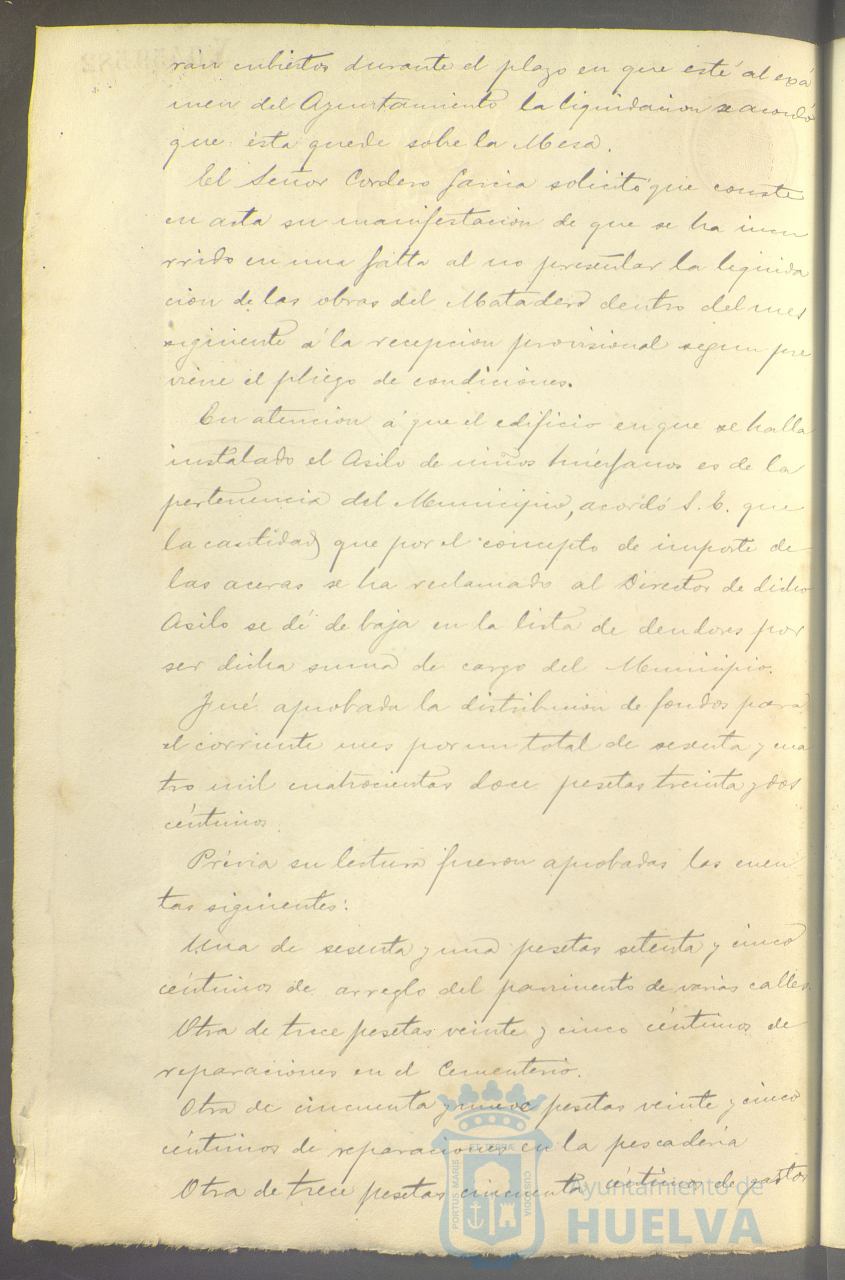 rán cubiertos durante el plazo en que esté al exá
men del Ayuntamiento la liquidacion se acordó
que ésta quede sobre la Mesa.
El Señor Cordero Garcia solicitó que conste
en acta su manifestacion de que se ha incu
rrido en una falta al no presentar la liquida
cion de las obras del Matadero dentro del mes
siguiente á la recepcion provisional segun pre
viene el pliego de condiciones.
En atencion á que el edificio en que se halla
instalado el Asilo de niños huérfanos es de la
pertenencia del Municipio, acordó S. E. que
la cantidad que por el concepto de importe de
las aceras se ha reclamado al Director de dicho
Asilo se dé de baja en la lista de deudores por
ser dicha suma de cargo del Municipio.
Fué aprobada la distribucion de fondos para
el corriente mes por un total de sesenta y cua
tro mil cuatrocientas doce pesetas treinta y dos
céntimos
Prévia su lectura fueron aprobadas las cuen
tas siguientes:
Una de sesenta y una pesetas setenta y cinco
céntimos de arreglo del pavimento de varias calles.
Otra de trece pesetas veinte y cinco céntimos de
reparaciones en el Cementerio.
Otra de cincuenta y nueve pesetas veinte y cinco
céntimos de reparaciones en la pescaderia
Otra de trece pesetas cincuenta céntimos de gastos
PORTUS MARIS
ET TERRE
CUSTODIA
Ayuntamiento de
HUELVA